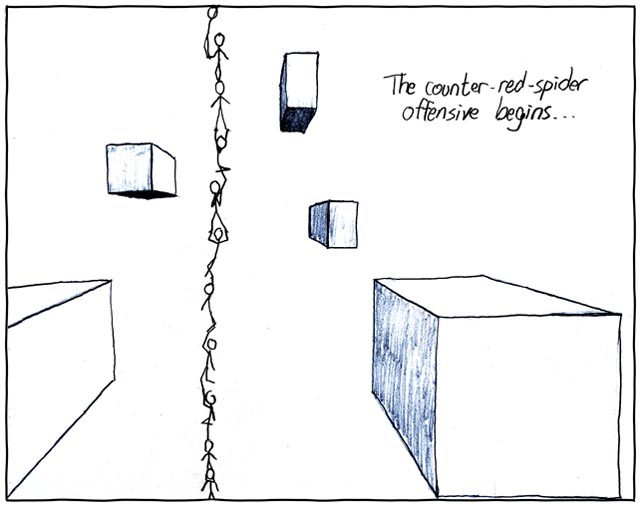 The counter-red-spider
offensive begins...